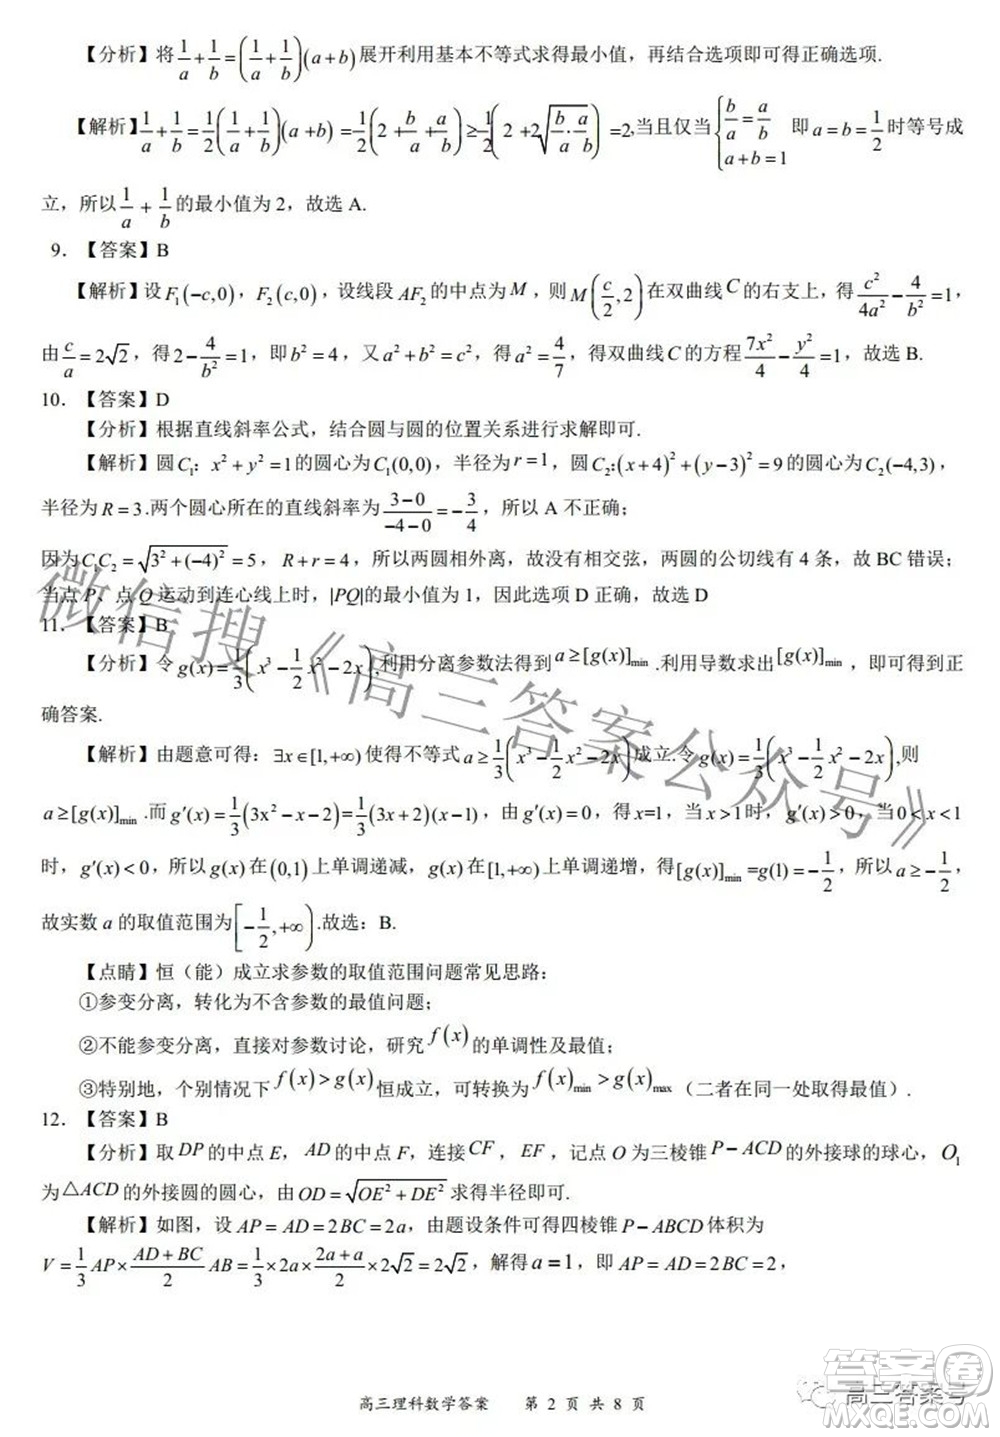 【分析】将 1/a + 1/b = (1/a + 1/b)(a+b) 展开利用基本不等式求得最小值，再结合选项即可得正确选项.
【解析】1/a + 1/b = 1/2(1/a + 1/b)(a+b) = 1/2(2 + b/a + a/b) ≥ 1/2(2 + 2√(b/a · a/b)) = 2,当且仅当 { b/a = a/b, a+b=1 即 a=b=1/2 时等号成
立，所以 1/a + 1/b 的最小值为 2，故选 A.
9．【答案】B
【解析】设 F₁(−c,0)，F₂(c,0)，设线段 AF₂ 的中点为 M，则 M(c/2,2) 在双曲线 C 的右支上，得 c²/4a² − 4/b² = 1，
由 c/a = 2√2，得 2 − 4/b² = 1，即 b² = 4，又 a² + b² = c²，得 a² = 4/7，得双曲线 C 的方程 7x²/4 − y²/4 = 1，故选 B.
10．【答案】D
【分析】根据直线斜率公式，结合圆与圆的位置关系进行求解即可.
【解析】圆 C₁：x² + y² = 1 的圆心为 C₁(0,0)，半径为 r = 1，圆 C₂：(x+4)² + (y−3)² = 9 的圆心为 C₂(−4,3)，
半径为 R = 3.两个圆心所在的直线斜率为 (3−0)/(−4−0) = −3/4，所以 A 不正确；
因为 C₁C₂ = √(3² + (−4)²) = 5，R + r = 4，所以两圆相外离，故没有相交弦，两圆的公切线有 4 条，故 BC 错误；
当点 P、点 Q 运动到连心线上时，|PQ|的最小值为 1，因此选项 D 正确，故选 D
11．【答案】B
【分析】令 g(x) = 1/3(x³ − 1/2 x² − 2x),利用分离参数法得到 a ≥ [g(x)]min .利用导数求出 [g(x)]min ，即可得到正
确答案.
【解析】由题意可得：∃x∈[1,+∞) 使得不等式 a ≥ 1/3(x³ − 1/2 x² − 2x) 成立.令 g(x) = 1/3(x³ − 1/2 x² − 2x),则
a ≥ [g(x)]min .而 g′(x) = 1/3(3x² − x − 2) = 1/3(3x + 2)(x − 1)，由 g′(x) = 0，得 x=1，当 x > 1 时，g′(x) > 0，当 0 < x < 1
时，g′(x) < 0，所以 g(x) 在 (0,1) 上单调递减，g(x) 在 [1,+∞) 上单调递增，得 [g(x)]min = g(1) = −1/2，所以 a ≥ −1/2，
故实数 a 的取值范围为 [−1/2,+∞).故选：B.
【点睛】恒（能）成立求参数的取值范围问题常见思路：
①参变分离，转化为不含参数的最值问题；
②不能参变分离，直接对参数讨论，研究 f(x) 的单调性及最值；
③特别地，个别情况下 f(x) > g(x) 恒成立，可转换为 f(x)min > g(x)max（二者在同一处取得最值）.
12．【答案】B
【分析】取 DP 的中点 E，AD 的中点 F，连接 CF，EF，记点 O 为三棱锥 P−ACD 的外接球的球心，O₁
为 △ACD 的外接圆的圆心，由 OD = √(OE² + DE²) 求得半径即可.
【解析】如图，设 AP = AD = 2BC = 2a，由题设条件可得四棱锥 P−ABCD 体积为
V = 1/3 AP × (AD + BC)/2 AB = 1/3 × 2a × (2a + a)/2 × 2√2 = 2√2，解得 a = 1，即 AP = AD = 2BC = 2，
高三理科数学答案　第 2 页 共 8 页
微信搜《高三答案公众号》
高三答案号
答案圈
MXQE.COM